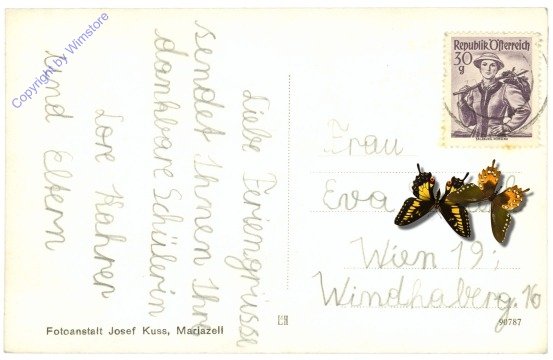 Copyright by Wimstore
Liebe Feriengrüsse
sendet Ihnen Ihre
dankbare Schülerin
Lore Kahren
und Eltern
Republik Österreich
30
g
Frau
Eva
Wien 19;
Windhaberg. 16
Fotoanstalt Josef Kuss, Mariazell
90787